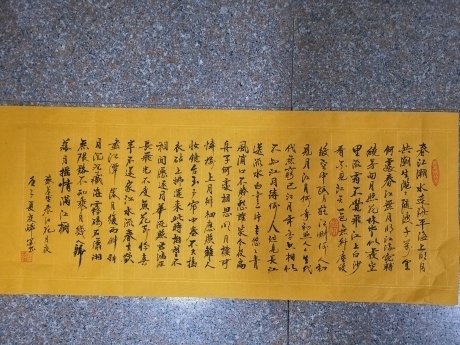 春江潮水連海平海上明月
共潮生灔灔隨波千萬里
何處春江無月明江流宛轉
繞芳甸月照花林皆似霰空
里流霜不覺飛汀上白沙
看不見江天一色無纖塵皎
皎空中孤月輪江畔何人初
見月江月何年初照人人生代
代無窮已江月年年只相似
不知江月待何人但見長江
送流水白雲一片去悠悠青
楓浦上不勝愁誰家今夜扁
舟子何處相思明月樓可
憐樓上月徘徊應照離人
妝鏡台玉戶簾中卷不去搗
衣砧上拂還來此時相望不
相聞願逐月華流照君鴻雁
長飛光不度
半不還家江水流春去欲
盡江潭落月復西斜斜
月沉沉藏海霧碣石瀟湘
無限路不知乘月幾人歸
落月搖情滿江樹
張若虛春江花月夜